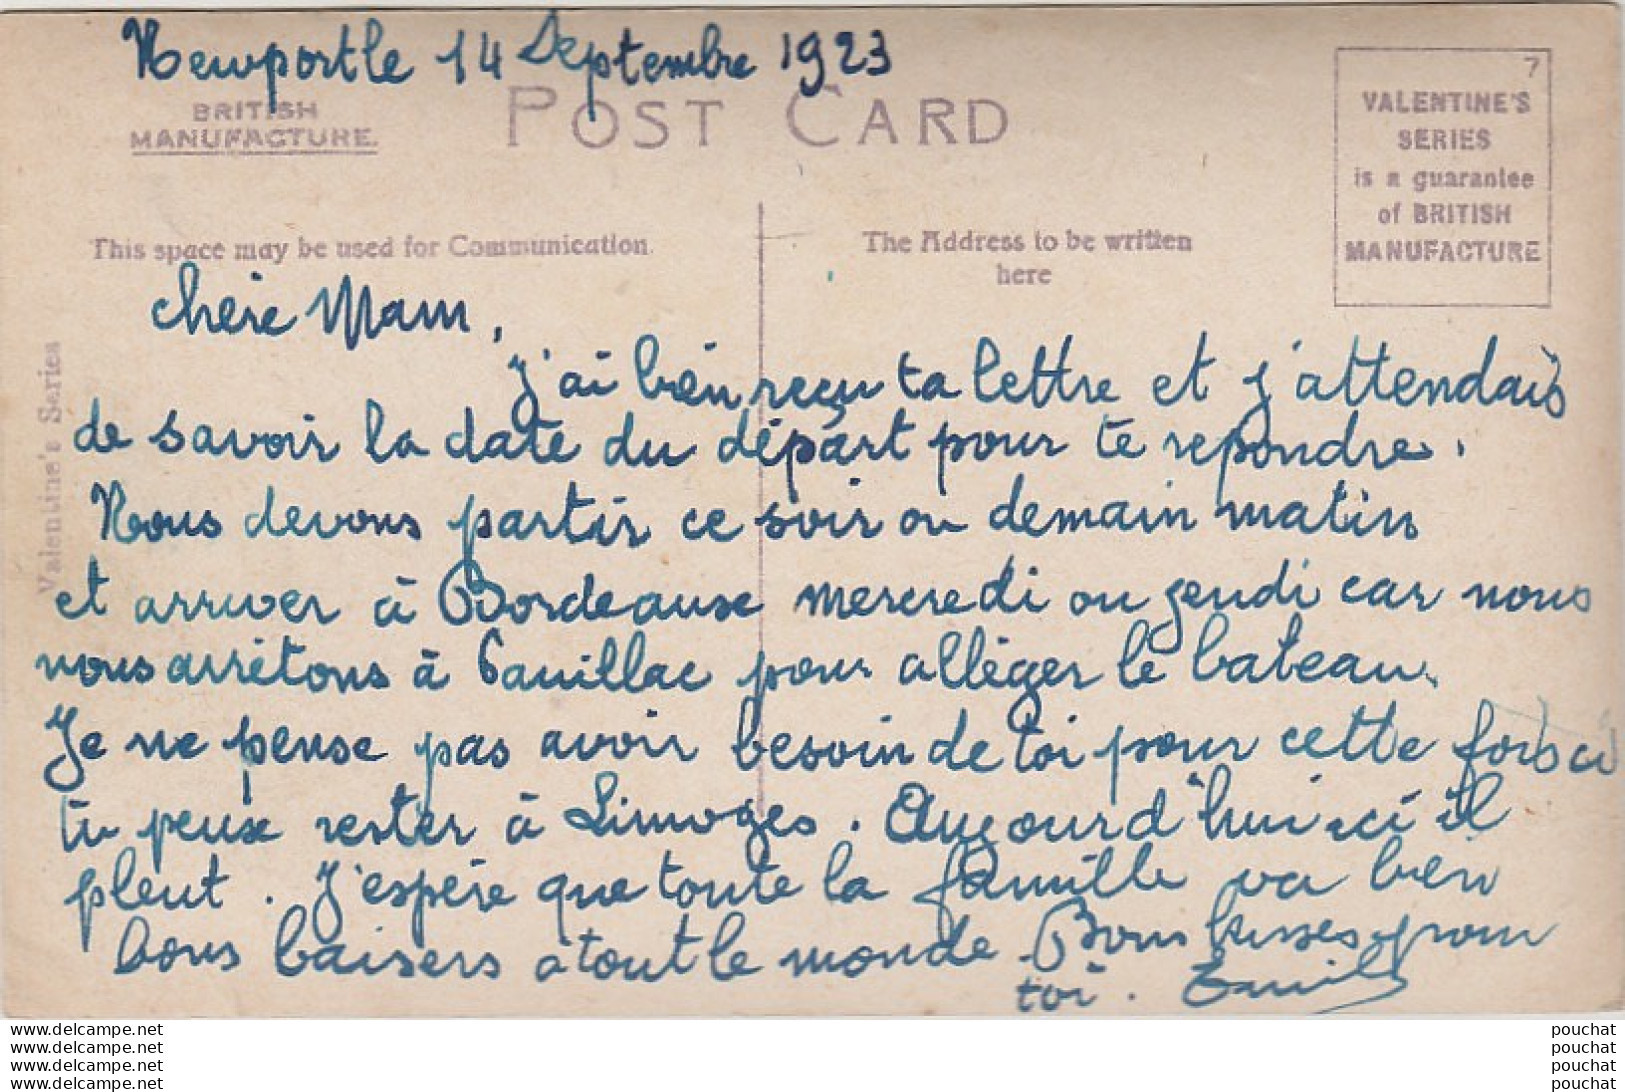 Newport le 14 Septembre 1923
BRITISH
MANUFACTURE.
POST CARD
7
VALENTINE'S
SERIES
is a guarantee
of BRITISH
MANUFACTURE
This space may be used for Communication.
The Address to be written
here
Valentine's Series
chère Mam,
J'ai bien reçu ta lettre et j'attendais
de savoir la date du départ pour te repondre.
Nous devons partir ce soir ou demain matin
et arriver à Bordeause mercredi ou jeudi car nous
nous arrêtons à Pauillac pour alléger le bateau.
Je ne pense pas avoir besoin de toi pour cette fois ci
tu peux rester à Limoges. Aujourd'hui ici il
pleut. J'espère que toute la famille va bien
bons baisers à tout le monde Bons kisses pour
toi.
www.delcampe.net
www.delcampe.net
www.delcampe.net
www.delcampe.net
pouchat
pouchat
pouchat
pouchat